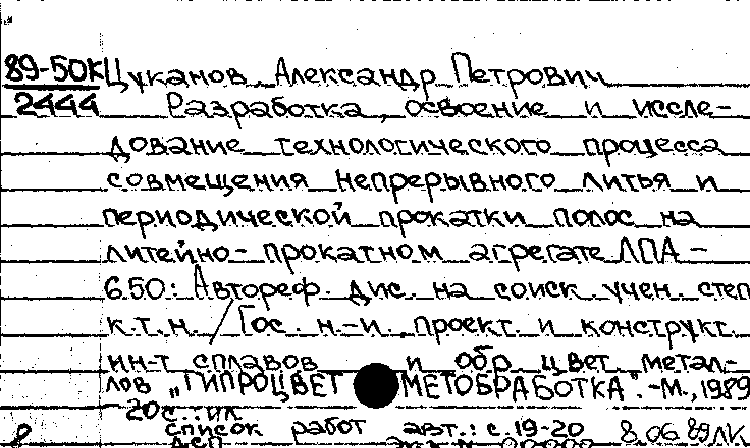 89-50К Цуканов, Александр Петрович
2444 Разработка, освоение и иссле-
дование технологического процесса
совмещения непрерывного литья и
периодической прокатки полос на
литейно-прокатном агрегате ЛПА-
650: Автореф. дис. на соиск. учен. степ.
к.т.н. / Гос. н.-и. проект. и конструкт.
ин-т сплавов и обр. цвет. метал-
лов „ГИПРОЦВЕТМЕТОБРАБОТКА". -М., 1989
20с.: ил.
список работ авт.: с.19-20 8.06.89
ДСП